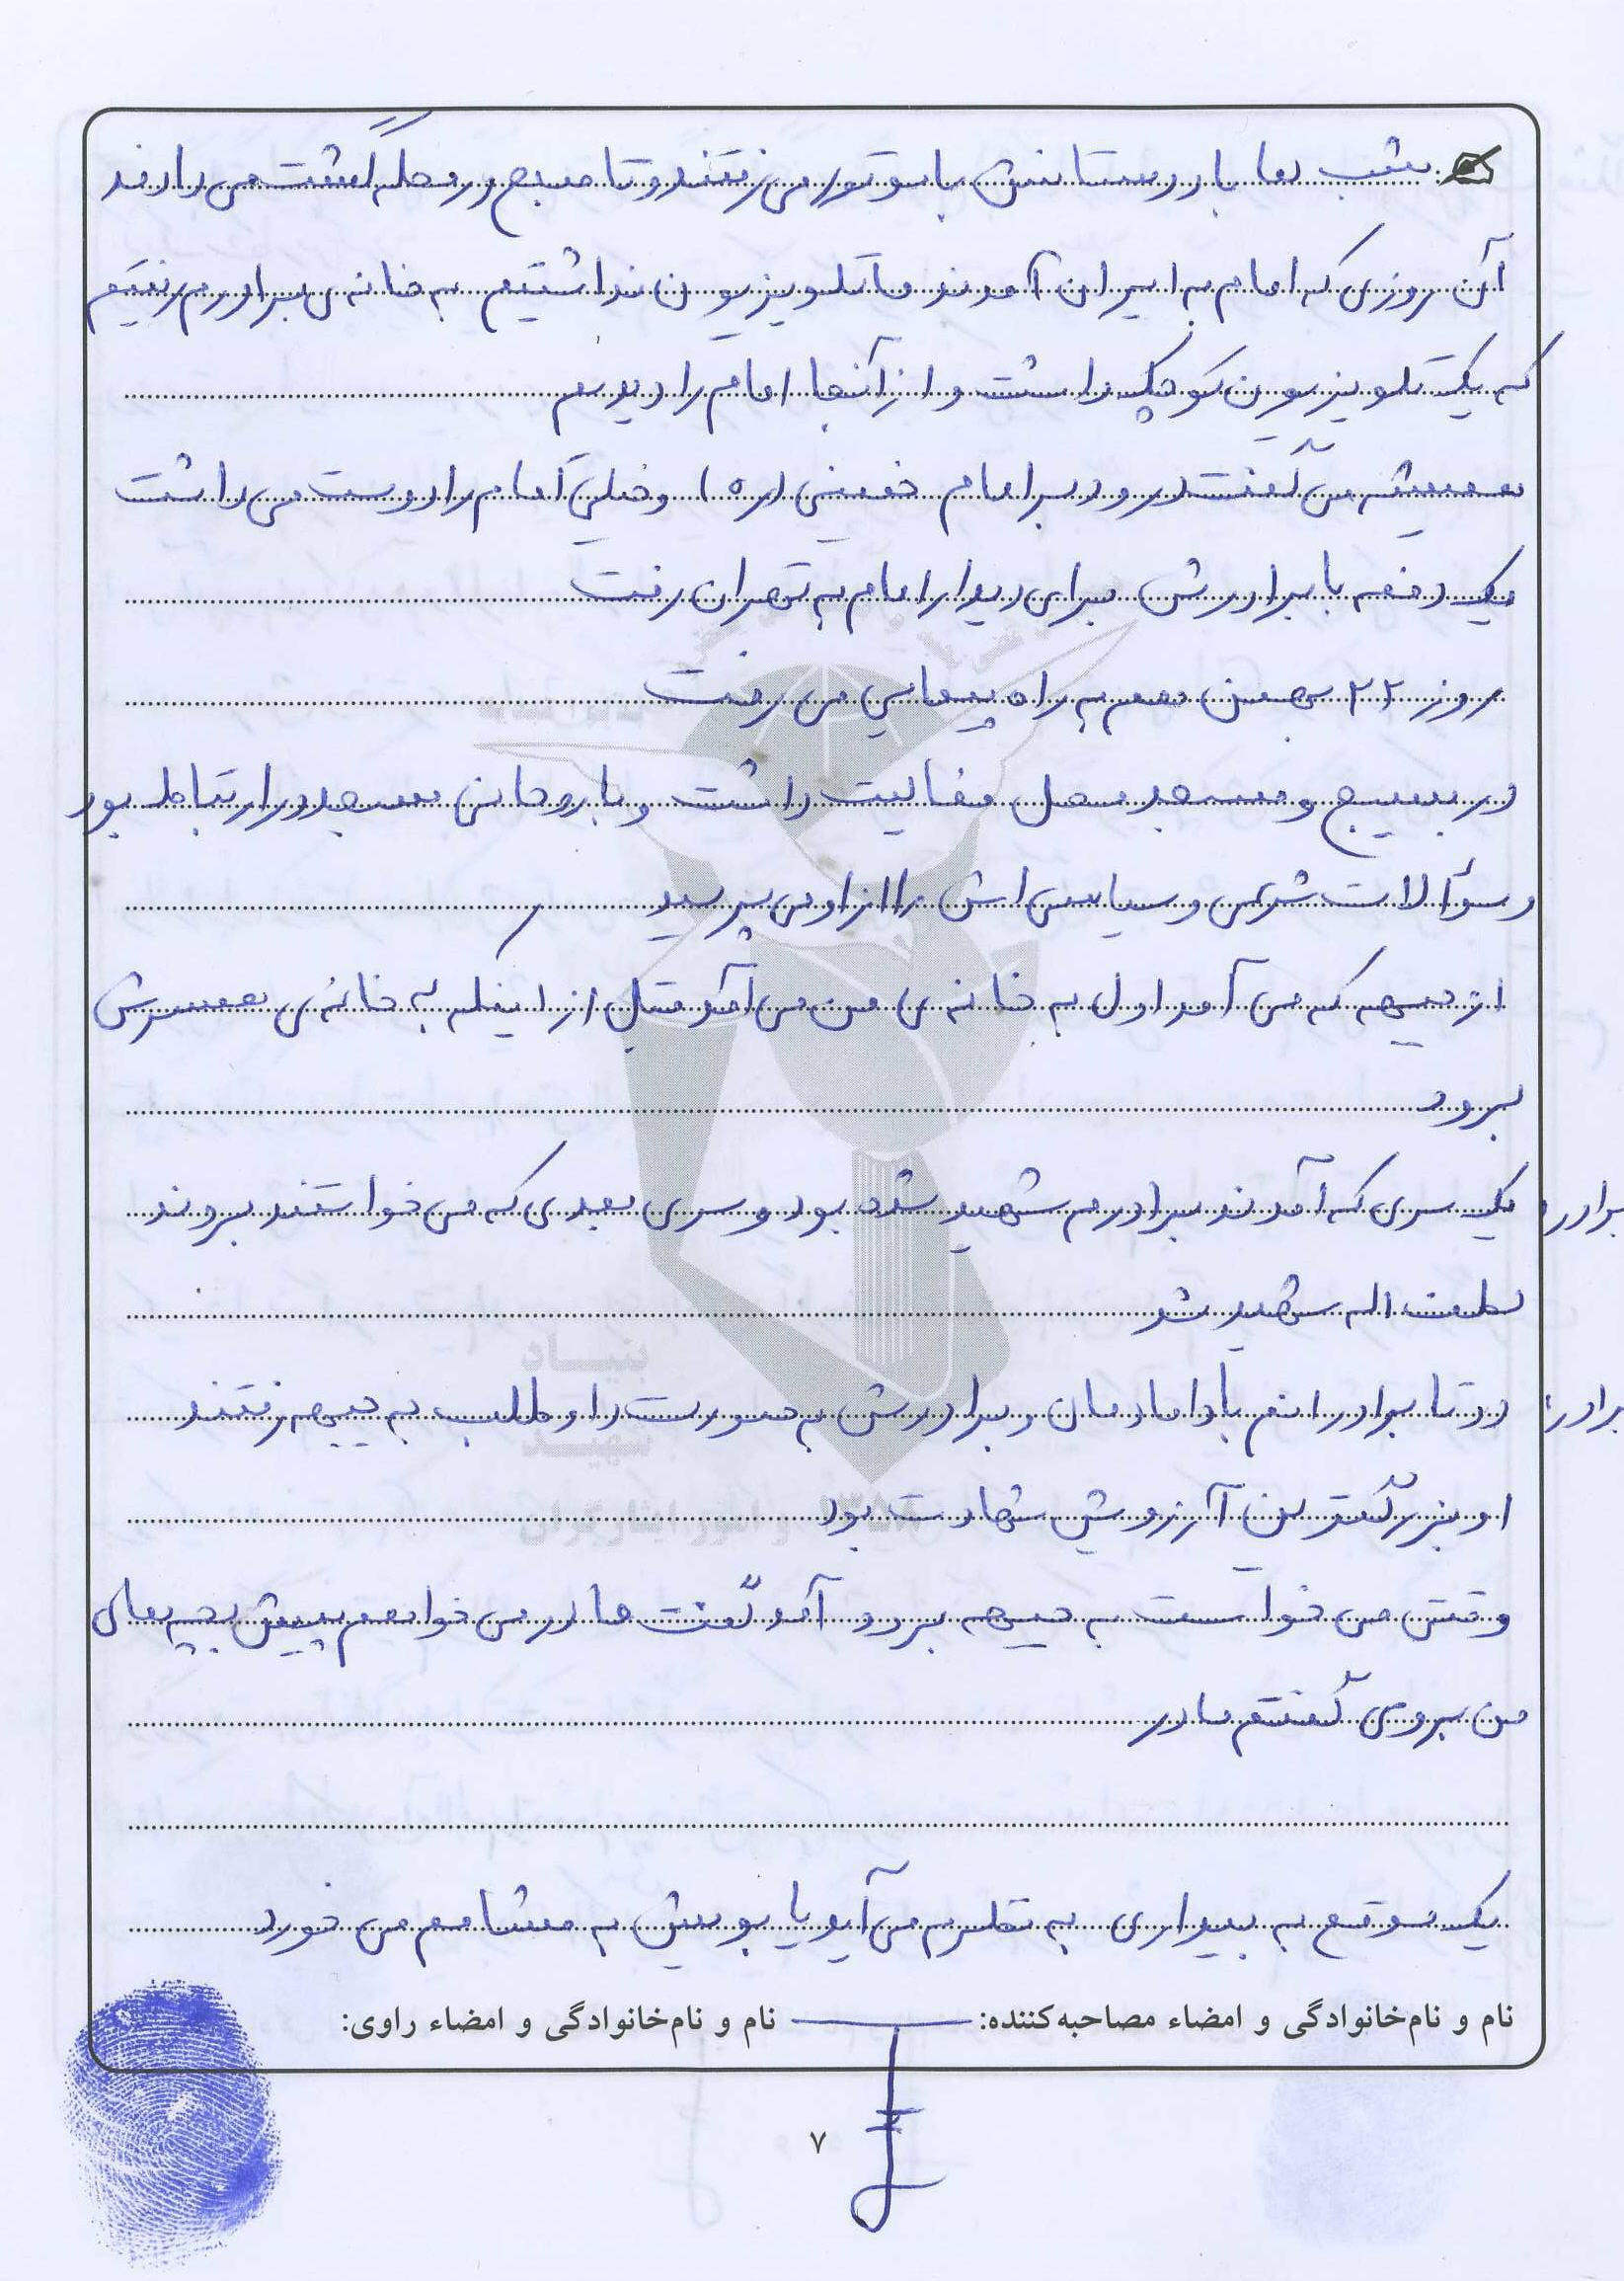 شب ها با دوستانش با موتور می رفتند و تا صبح در محله گشت می دادند
آن روزی که امام به ایران آمدند ما تلویزیون نداشتیم به خانه ی برادرم رفتیم
که یک تلویزیون کوچک داشت و از آنجا امام را دیدیم
همیشه می گفت درود بر امام خمینی (ره) و خیلی امام را دوست می داشت
یک دفعه با برادرش برای دیدار امام به تهران رفت
روز ۲۲ بهمن هم به راه پیمایی می رفت
در بسیج و مسجد محل فعالیت داشت و با روحانی مسجد در ارتباط بود
و سؤالات شرعی و سیاسی اش را از او می پرسید
از جبهه که می آمد اول به خانه ی من می آمد قبل از اینکه به خانه ی همسرش
برود
یک سری که آمدند برادرم شهید شده بود و سری بعدی که می خواستند بروند برادر
لطف اله شهید شد
دو تا برادرانم با دامادمان و برادرش به صورت داوطلب به جبهه رفتند برادر
او بزرگترین آرزویش شهادت بود
وقتی می خواست به جبهه برود آمد گفت مادر می خواهم پیش بچه های
من بروی گفتم مادر
یک موقع به بیداری به نظرم می آید یا بویش به مشامم می خورد
نام و نام‌خانوادگی و امضاء مصاحبه‌کننده: نام و نام‌خانوادگی و امضاء راوی:
۷
بنیاد
شهید
و امور ایثارگران